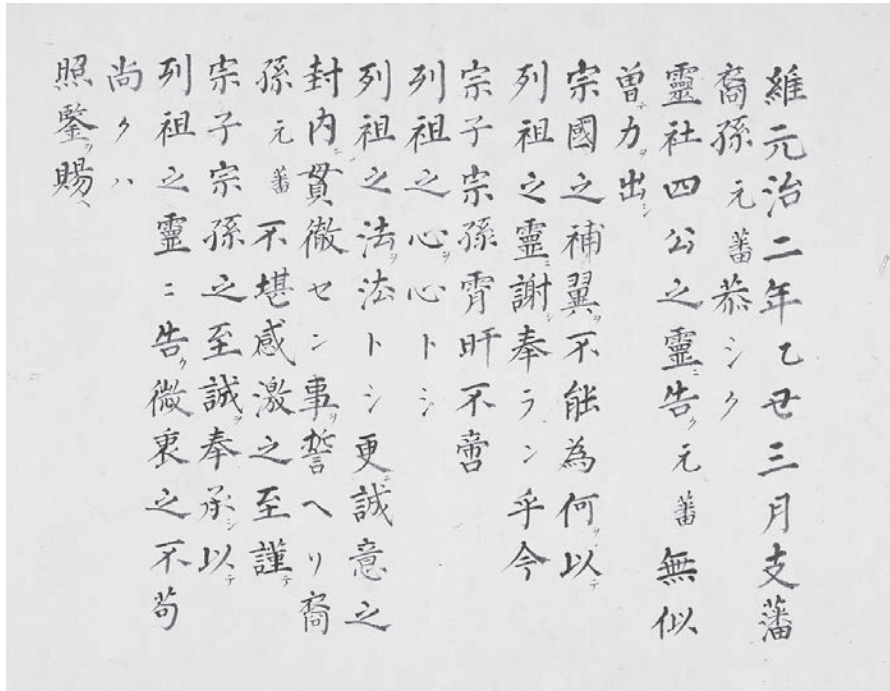 維元治二年乙丑三月支藩
裔孫元蕃恭シク
靈社四公之靈ニ告ク元蕃無似
曽テ力ヲ出シ
宗國之補翼ヲ不能為何ヲ以テ
列祖之靈ニ謝シ奉ラン乎今
宗子宗孫霄旰不啻
列祖之心ヲ心トシ
列祖之法ヲ法トシ更ニ誠意之
封内ニ貫徹セン事ヲ誓ヘリ裔
孫元蕃不堪感激之至謹テ
宗子宗孫之至誠ヲ奉承シ以テ
列祖之靈ニ告ク微衷之不苟
尚クハ
照鑒ヲ賜ヘ